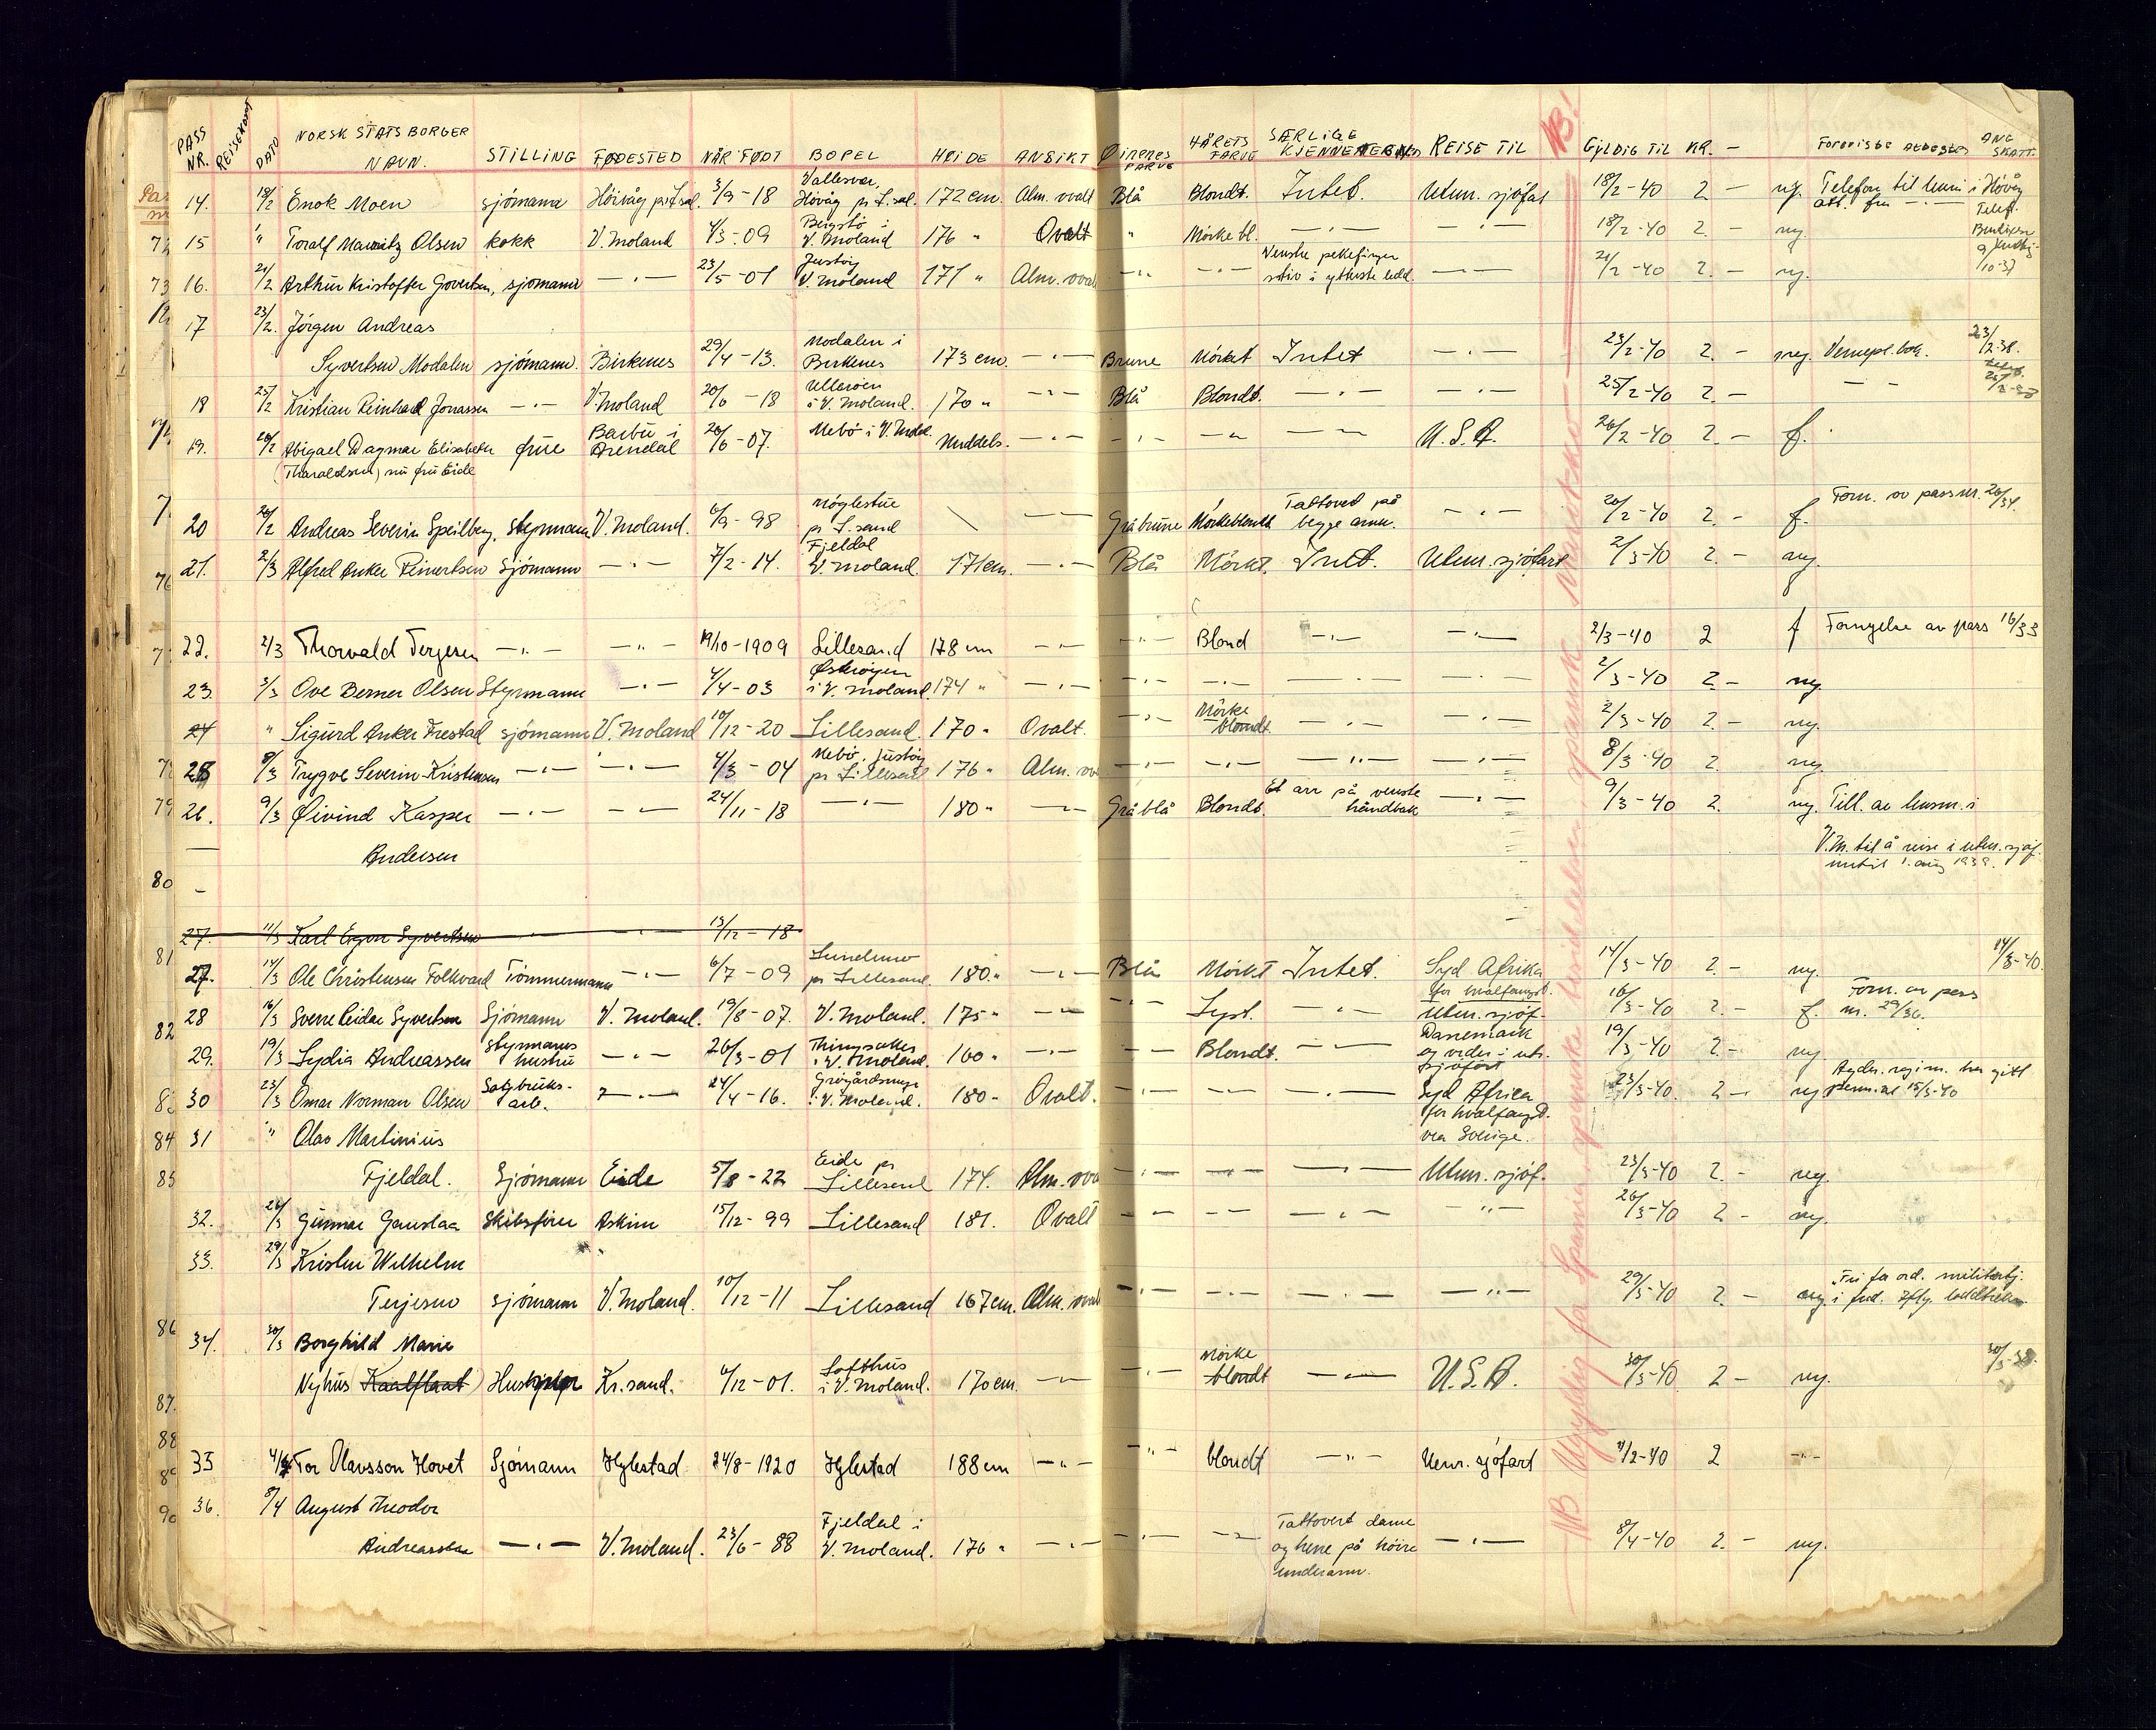 PASS NR. REISEKORT DATO NORSK STATSBORGER NAVN. STILLING FØDESTED NÅR FØDT BOPEL HØIDE ANSIKT ØINENES FARVE HÅRETS FARVE SÆRLIGE KJENNETEGN REISE TIL NB! GYLDIG TIL KR. - FOREVISTE ATTESTER ANG. SKATT.
14. 18/2 Enok Moen sjömann Hövåg pr L.sa. 3/9-18 Vallesver, Hövåg pr L.sa. 172 cm. Alm. ovalt Blå Blondt. Intet. Uten. sjöfat 18/2-40 2 - ny. Telefon til lensm i Hövåg
15 " Toralf Mauritz Olsen kokk V. Moland 4/3-09 i V. Moland 176 " Ovalt " Mörke bl. —·— —·— 18/2-40 2. - ny.
16. 21/2 Arthur Kristoffer Govertsen, sjömann —·— 23/5-01 Justöy V. Moland 171 " Alm. oval —·— —·— Venstre pekefinger stiv i ytterste ledd. —·— 21/2-40 2. - ny.
17 23/2. Jörgen Andreas
Syvertsen Modalen sjömann. Birkenes 29/4-13. Modalen i Birkenes 173 cm. —·— Brune Mörket Intet —·— 23/2-40 2. - ny. Vernepl. bok. 23/2-38.
18 25/2 Kristian Reinhard Jonassen —·— V. Moland 20/6-18 Ulleröen i V. Moland. 170 " —·— Blå Blondt. —·— —·— 25/2-40 2. -
19. 26/2 Abigael Dagmar Elisabeth frue Barbu i Arendal 26/6-07. Mebö i V. Mol. Middels. —·— —·— —·— —·— U.S.A. 26/2-40 2. - f.
(Tharaldsen) nu fru Eide
20 26/2 Andreas Severin Speilberg, Styrmann V. Moland. 6/9-98 Möglestue pr L.sand —·— Gråbrune Mörkeblondt Tattovert på begge armer. —·— 26/2-40 2. - f. Forn. av pass nr. 26/34.
21. 2/3 Alfred Anker Reinertsen Sjömann —·— 7/2-14. Fjeldal V. Moland. 171 cm. —·— Blå Mörkt. Intet. Uten. sjöfart 2/3-40 2. - ny.
22. 2/3 Thorvald Terjesen —·— —·— 19/10-1909 Lillesand 178 cm —·— —·— Blond —·— —·— 2/3-40 2 f Fornyelse av pass 16/33
23. 2/3 Ove Berner Olsen Styrmann —·— 4/4-03 i V. Moland 174 " —·— —·— —·— —·— —·— 2/3-40 2. - ny.
24 " Sigurd Anker Trestad sjömann V. Moland 10/12-20 Lillesand. 170 " Ovalt. —·— Mörke blondt. —·— —·— 2/3-40 2. - ny.
25 8/3 Trygve Severin Kristensen —·— —·— 4/3-04 Mebö, Justöy pr Lillesand 176 " Alm. ov —·— —·— —·— —·— 8/3-40 2. ny.
26. 9/3 Øivind Kasper —·— —·— 24/11-18 —·— 180 " —·— Gråblå Blondt. Et arr på venstre håndbak —·— 9/3-40 2. ny. Till. av lensm. i
Andersen V.M. til å reise i uten. sjöf. inntil 1. aug 1939.
27. 11/3 Karl Egon Syvertsen 13/12-18
27. 14/3 Ole Christensen Folkvard Tömmermann —·— 6/7-09 pr Lillesand. 180 " —·— Blå Mörkt Intet. Syd Afrika for hvalfangst. 14/3-40 2. - ny. 14/3-40.
28 16/3 Sverre Reidar Syvertsen Sjömann V. Moland. 19/8-07. V. Moland. 175 " —·— —·— Lyst. —·— Uten. sjöf. 16/3-40 2. - f. Forn. av pass nr. 29/36.
29. 19/3 Lydia Andreassen Styrmanns hustru —·— 26/3-01 i V. Moland. 160 " —·— —·— Blondt. —·— Danemark og videre i utr. sjöfart 19/3-40 2. - ny.
30 23/3 Omar Norman Olsen Sagbruks- arb. —·— 24/4-16. Grögårdsmyr i V. Moland. 180 - Ovalt. —·— —·— —·— Syd Africa for hvalfangst. via Sverige. 23/3-40. 2 - ny Agder regim. har gitt perm. til 15/5-40
31 " Olav Martinius
Fjeldal. Sjömann Eide 5/8-22 Eide pr Lillesand 174. Alm. ova —·— —·— —·— Uten. sjöf. 23/3-40 2. - ny.
32. 26/3 Gunnar Gauslaa Skibsförer Askim 15/12-99 Lillesand 181. Ovalt —·— —·— —·— —"— 26/3-40 2 - ny.
33. 29/3 Kristen Wilhelm
Terjesen sjömann V. Moland. 10/12-11 Lillesand 167 cm. Alm. oval —·— —·— —·— —"— 29/3-40 2. - ny.
34. 30/3 Borghild Marie
Nyhus (Kaalflaat) Kr.sand. 6/12-01. Lofthus i V. Moland. 170 cm. —·— —·— Mörke blondt —·— U.S.A. 30/3-40 2 - ny.
35 4/4 Tor Olavsson Hovet Sjömann Hylestad 24/8-1920 Hylestad 188 cm —"— —"— blondt —"— Utenr. sjöfart 4/2-40 2 —"—
36. 8/4 August Theodor
Andreassen —·— V. Moland. 23/6-88 Fjeldal i V. Moland. 176 " —·— —·— —·— Tattovert dame og hene på höire underarm. —·— 8/4-40 2. - ny.
NB Ugyldig for Spania, spanske besiddelser, spansk Marokko